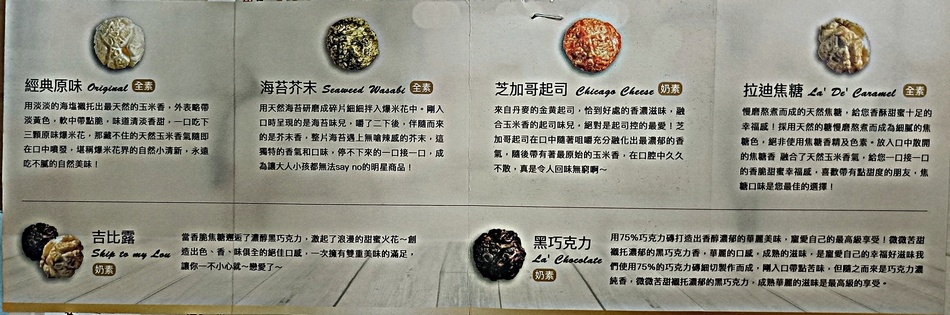 經典原味 Original 全素
用淡淡的海塩襯托出最天然的玉米香，外表略帶
淡黃色，軟中帶點脆，味道清淡香甜，一口吃下
三顆原味爆米花，那藏不住的天然玉米香氣隨即
在口中噴發，堪稱爆米花界的自然小清新，永遠
吃不膩的自然美味！
海苔芥末 Seaweed Wasabi 全素
用天然海苔研磨成碎片細細拌入爆米花中，剛入
口時呈現的是海苔味兒，嚼了二下後，伴隨而來
的是芥末香，整片海苔遇上無嗆辣感的芥末，這
獨特的香氣和口味，停不下來的一口接一口，成
為讓大人小孩都無法say no的明星商品！
芝加哥起司 Chicago Cheese 奶素
來自丹麥的金黃起司，恰到好處的香濃滋味，融
合玉米香的起司味兒，絕對是起司控的最愛！芝
加哥起司在口中隨著咀嚼充分融化出最濃郁的香
氣，隨後帶有著最原始的玉米香，在口腔中久久
不散，真是令人回味無窮啊～
拉迪焦糖 La' De' Caramel 全素
慢磨熬煮而成的天然焦糖，給您香酥甜蜜十足的
幸福感！採用天然的糖慢磨熬煮而成為細膩的焦
糖色，絕非使用焦糖香精及色素。放入口中散開
的焦糖香 融合了天然玉米香氣，給您一口接一口
的香脆甜蜜幸福感，喜歡帶有點甜度的朋友，焦
糖口味是您最佳的選擇！
吉比露
Ship to my Lou
奶素
當香脆焦糖邂逅了濃醇黑巧克力，激起了浪漫的甜蜜火花～創
造出色、香、味俱全的絕佳口感，一次擁有雙重美味的滿足，
讓你一不小心就～戀愛了～
黑巧克力
La' Chocolate
奶素
用75%巧克力磚打造出香醇濃郁的華麗美味，寵愛自己的最高級享受！微微苦甜
襯托濃郁的黑巧克力香，華麗的口感，成熟的滋味，是寵愛自己的幸福好滋味我
們使用75%的巧克力磚細切製作而成，剛入口帶點苦味，但隨之而來是巧克力濃
純香，微微苦甜襯托濃郁的黑巧克力，成熟華麗的滋味是最高級的享受。